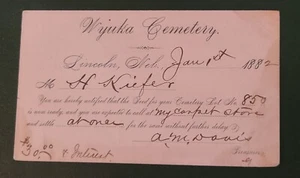 Wyuka Cemetery.
Lincoln, Neb. Jan 1st 1882
M H Kiefer
You are hereby notified that the Deed for your Cemetery Lot No. 850
is now ready, and you are expected to call at my carpet store
and settle at once for the same without further delay.
A. M. Davis
$30.00 & Interest